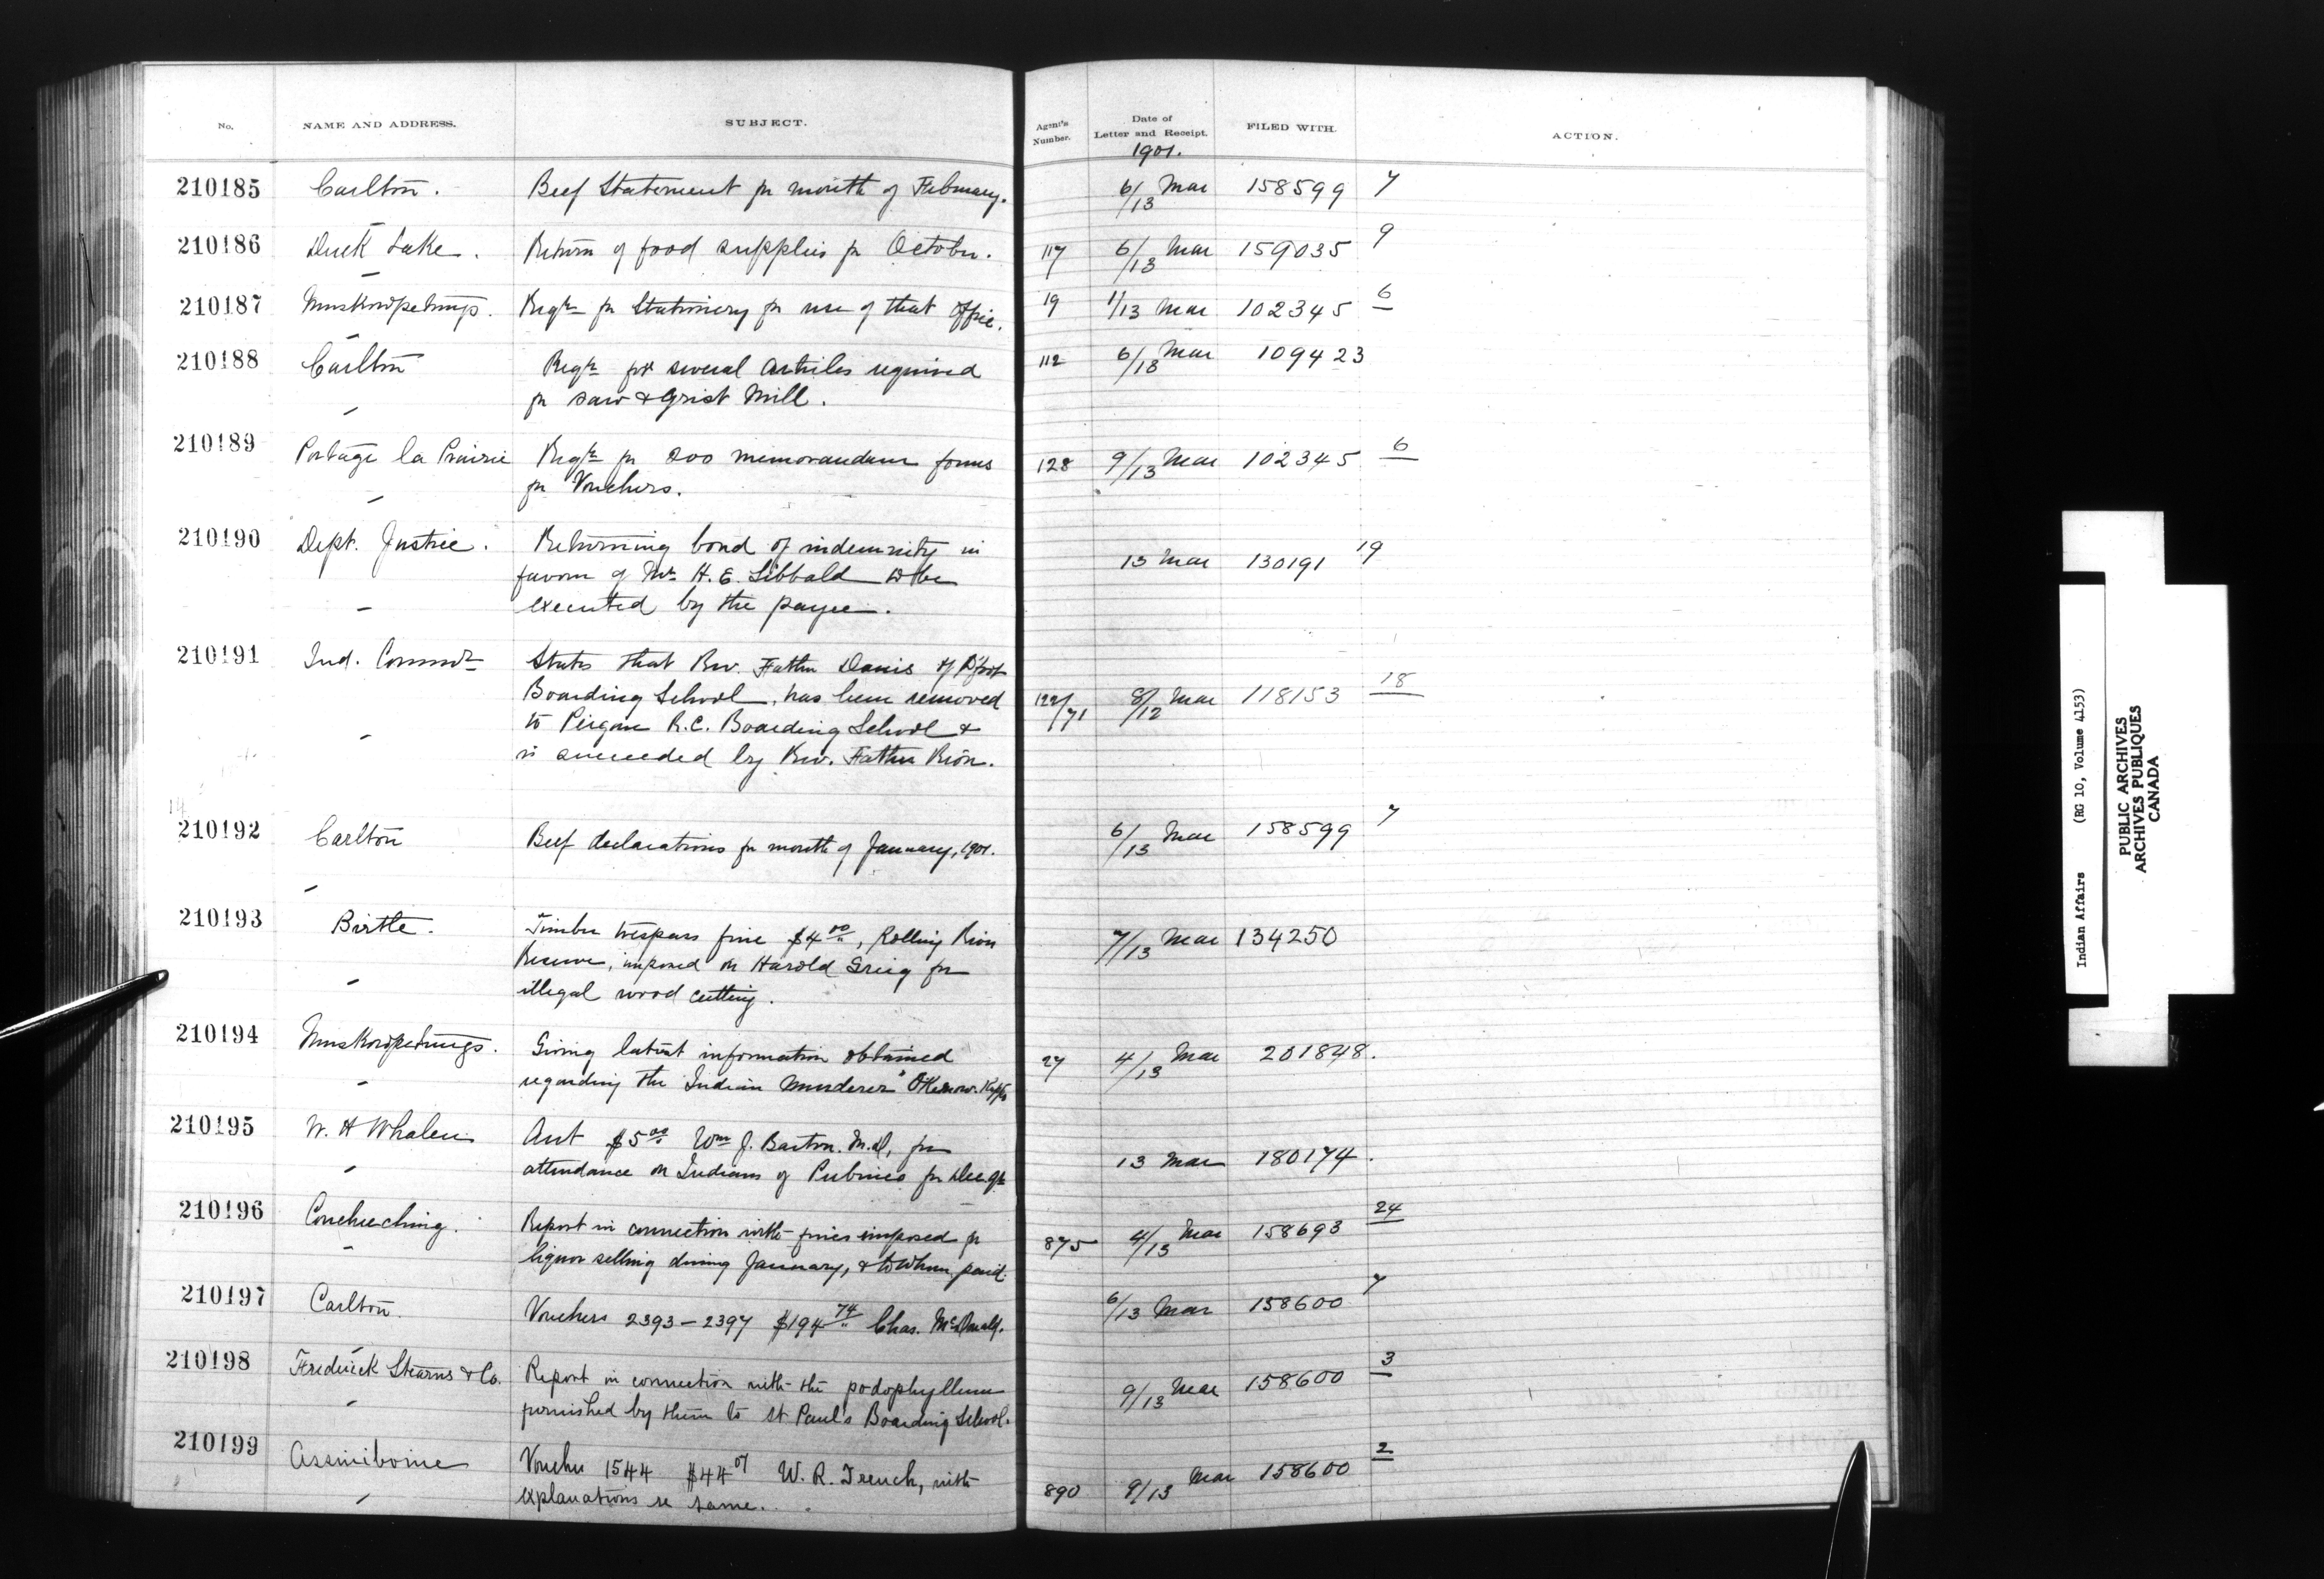 No. NAME AND ADDRESS. SUBJECT. Agent's Number. Date of Letter and Receipt. FILED WITH. ACTION.
1901.
210185 Carlton. Beef Statement for month of February. 6/13 Mar 158599 7
210186 Duck Lake. Return of food supplies for October. 117 6/13 Mar 159035 9
210187 Muskowpetungs. Reqn for Stationery for use of that Office. 19 11/13 Mar 102345 6
210188 Carlton Reqn for several articles required 112 6/13 Mar 109423
for saw & Grist Mill.
210189 Portage la Prairie Reqn for 200 memorandum forms 128 9/13 Mar 102345 6
for Vouchers.
210190 Dept. Justice. Returning bond of indemnity in 13 Mar 130191 19
favour of Mr. H. E. Sibbald to be
executed by the payee.
210191 Ind. Commr States that Rev. Father Danis of
Boarding School, has been removed 122/71 8/12 Mar 118153 18
to Peigan R.C. Boarding School &
is succeeded by Rev. Father
210192 Carlton Beef declarations for month of January, 1901. 6/13 Mar 158599 7
210193 Birtle. Timber trespass fine $4.00, Rolling River 7/13 Mar 134250
Reserve, imposed on Harold Greig for
illegal wood cutting.
210194 Muskowpetungs. Giving latest information obtained 27 4/13 Mar 201848.
regarding the Indian Murderer
210195 W. H Whalen Acct $5.00 Wm J. Barton. M.D, for 13 Mar 180174.
attendance on Indians of Pubnico for Dec. Qr
210196 Couchiching. Report in connection with fines imposed for 875 4/13 Mar 158693 24
liquor selling during January, & to whom paid.
210197 Carlton. Vouchers 2393 – 2397 $194.74 Chas. McDonald. 6/13 Mar 158600 7
210198 Frederick Stearns & Co. Report in connection with the podophyllum 9/13 Mar 158600 3
furnished by them to St Paul's Boarding School.
210199 Assiniboine Voucher 1544 $44.07 W. R. French, with 890 9/13 Mar 158600 2
explanations re same.
Indian Affairs (RG 10, Volume 4153)
PUBLIC ARCHIVES
ARCHIVES PUBLIQUES
CANADA